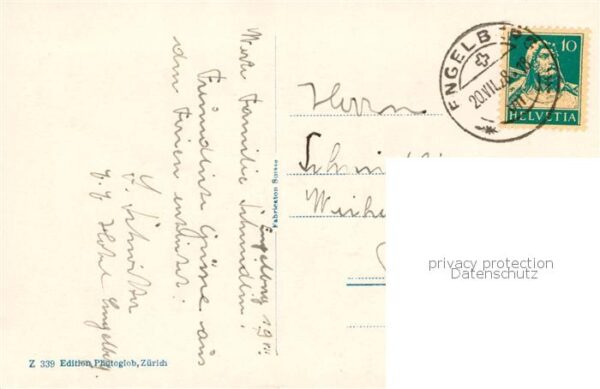 Engelberg 19. VII.
Werte Familie Schmidlin!
Freundliche Grüsse aus
den Ferien entbietet:
z. Z. Hotel Engelberg.
Fabrication Suisse
Herrn
ENGELB
20.VII.
10
HELVETIA
privacy protection
Datenschutz
Z 339 Edition Photoglob, Zürich